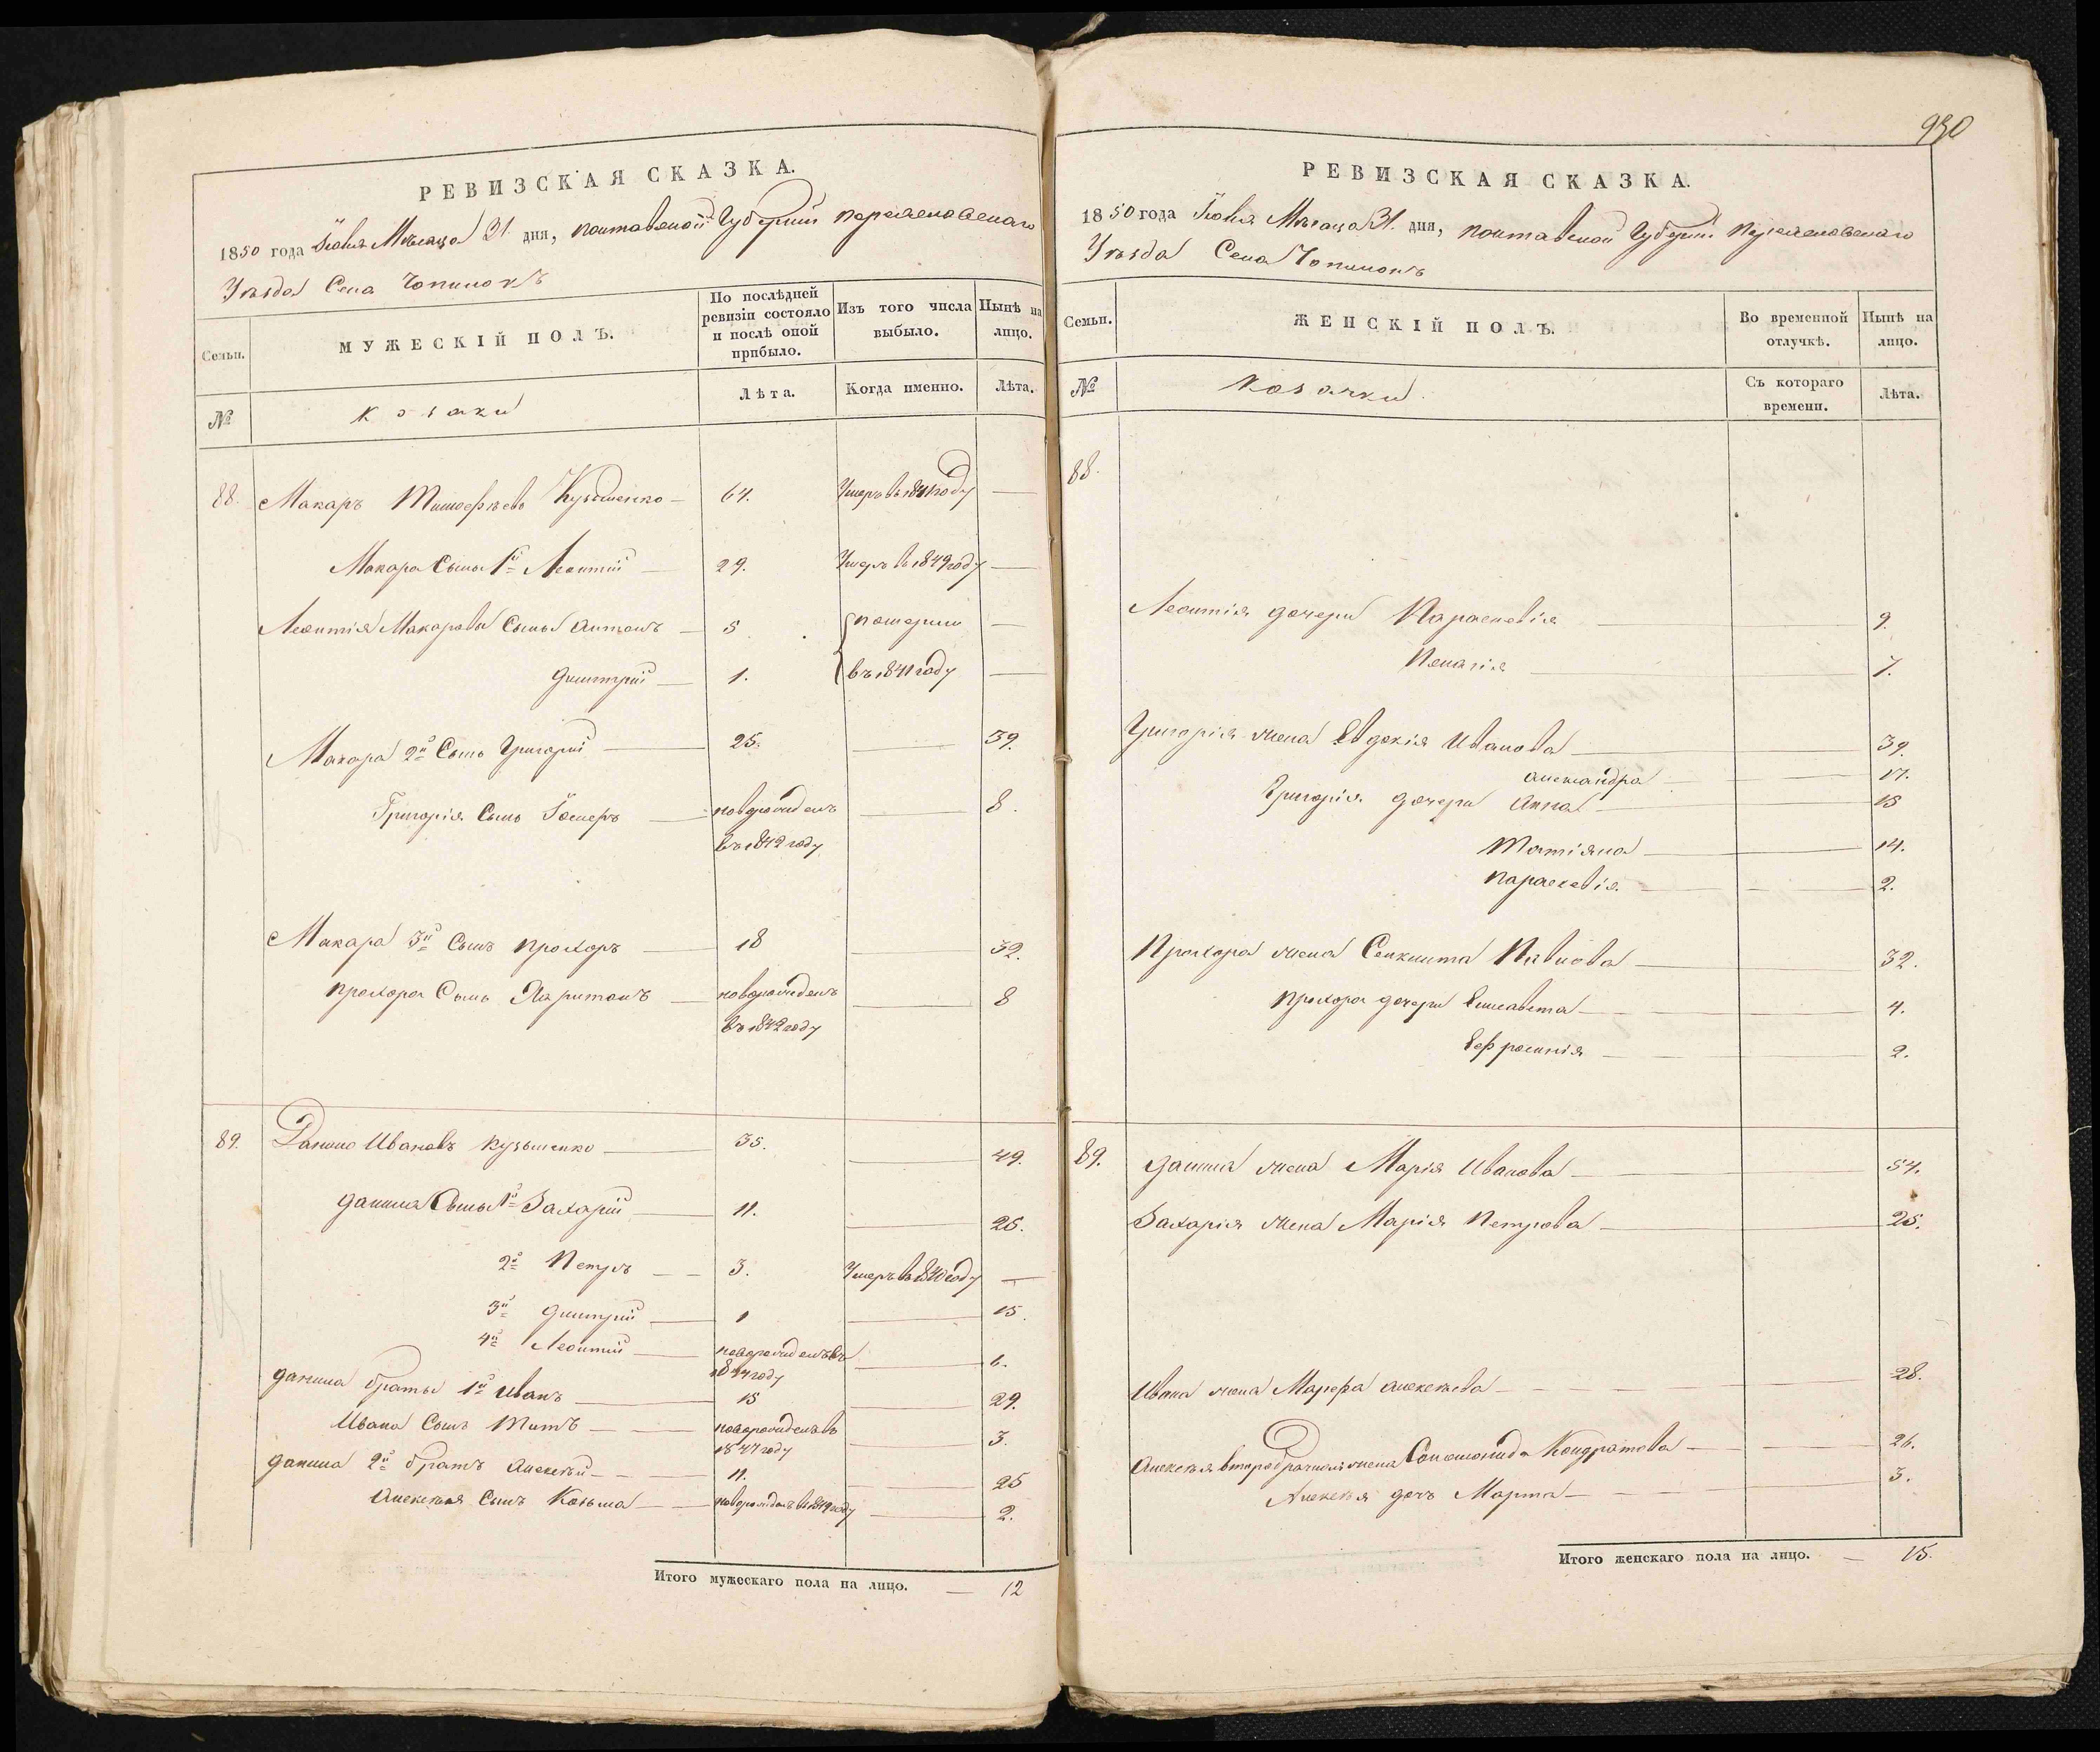 РЕВИЗСКАЯ СКАЗКА.
1850 года Іюня Месяца 31 дня, Полтавской Губерніи Переяславскаго
Уезда Села Чопилокъ
Семьи.
МУЖЕСКІЙ ПОЛЪ.
По послѣдней ревизіи состояло и послѣ оной прибыло.
Изъ того числа выбыло.
Нынѣ на лицо.
№
козаки
Лѣта.
Когда именно.
Лѣта.
88. Макаръ Тимофѣевъ Кузьменко 64. Умеръ въ 1841 году —
Макара Сыны 1й Леонтій 29. Умеръ в 1849 году —
Леонтія Макарова Сыны Антонъ 5 Померли —
Дмитрій 1. въ 1841 году —
Макара 2й Сынъ Григорій 25. — 39.
Григорія Сынъ новорожденъ — 8.
въ 1842 году
Макара 3й Сынъ Прохоръ 18 — 32.
Прохора Сынъ Харитонъ новорожденъ — 8
въ 1842 году
89. Данило Ивановъ Кузьменко 35. — 49.
Данила Сыны 1й Захарій 11. — 25.
2й Петръ 3. Умеръ в 1840 году —
3й Дмитрій 1 — 15.
4й Леонтій новорожденъ въ — 6.
1844 году
Данила братья 1й Иванъ 15 — 29.
Ивана Сынъ Титъ новорожденъ в — 3.
1847 году
Данила 2й братъ Алексѣй 11. — 25
Алексѣя Сынъ Козьма новорожденъ в 1849 году — 2.
Итого мужескаго пола на лицо. — 12
930
РЕВИЗСКАЯ СКАЗКА.
1850 года Іюня Месяца 31. дня, Полтавской Губерніи Переяславскаго
Уезда Села Чопилокъ
Семьи.
ЖЕНСКІЙ ПОЛЪ.
Во временной отлучкѣ.
Нынѣ на лицо.
№
козачки.
Съ котораго времени.
Лѣта.
88.
Леонтія дочери Параскевія 9.
Пелагія 7.
Григорія жена Евдокія Иванова 39.
Александра 17.
Григорія дочери Анна 15
Матіяна 14.
Параскевія 2.
Прохора жена Павлова 32.
Прохора дочери Елисавета 4.
Ефросинія 2.
89. Данила жена Марія Иванова 54.
Захарія жена Марія Петрова 25.
Ивана жена Марфа Алексѣева 28.
Алексѣя второбрачная жена Соломонида Кондратова 26.
Алексѣя дочь Марта 3.
Итого женскаго пола на лицо. — 15.